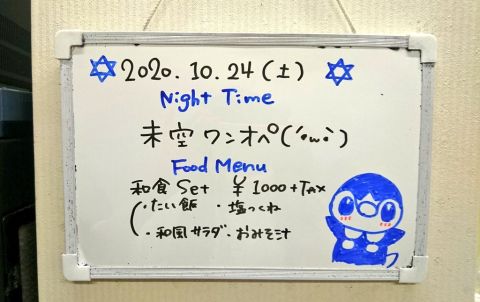 2020.10.24(土)
Night Time
未空ワンオペ(´•ω•`)
Food Menu
和食Set ¥1000+TAX
・たい飯 ・塩つくね
・和風サラダ・おみそ汁